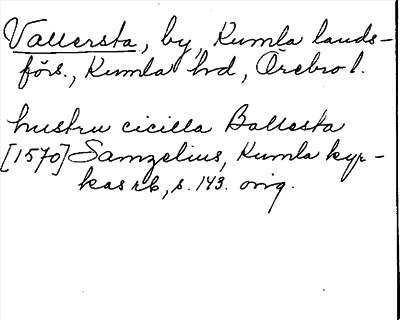 Vallersta, by, Kumla lands-
förs., Kumla hd, Örebro l.
hustru cicilla Ballesta
[1570] Samzelius, Kumla kyr-
kas rb, s. 143. orig.